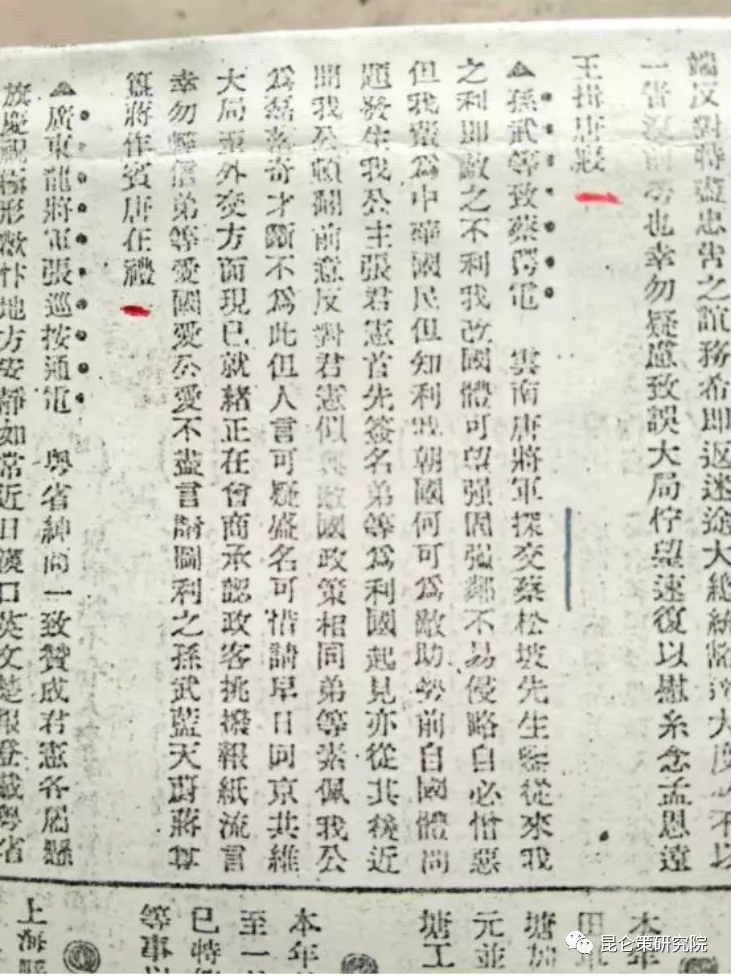 端反對特盡忠告之誼務希即返迷途大總統
一眚
也幸勿疑慮致誤大局佇望速復以慰系念孟恩遠
王揖唐
▲孫武等致蔡鍔電 雲南唐將軍探交蔡松坡先生鑒從來我
之利即敵之不利我改國體可望强固强鄰不易侵略自必憎惡
但我輩為中華國民但知利我朝國何可為敵助勢前自國體問
題發生我公主張君憲首先簽名弟等為利國起見亦從其後近
聞我公頓翻前意反對君憲似與敵國政策相同弟等素佩我公
為磊落奇才斷不為此但人言可疑盛名可惜請早日回京共維
大局至外交方面現已就緒正在會商承認政客挑撥報紙流言
幸勿輕信弟等愛國愛公愛不盡言請圖利之孫武藍天蔚蔣尊
簋蔣作賓唐在禮
▲廣東龍將軍張巡按通電 粵省紳商一致贊成君憲各屬懸
旗慶祝 地方安靜如常近日漢口英文楚報登載粵省
本年
塘
元並
塘工
本年
至一
已特
等事
上海
昆仑策研究院